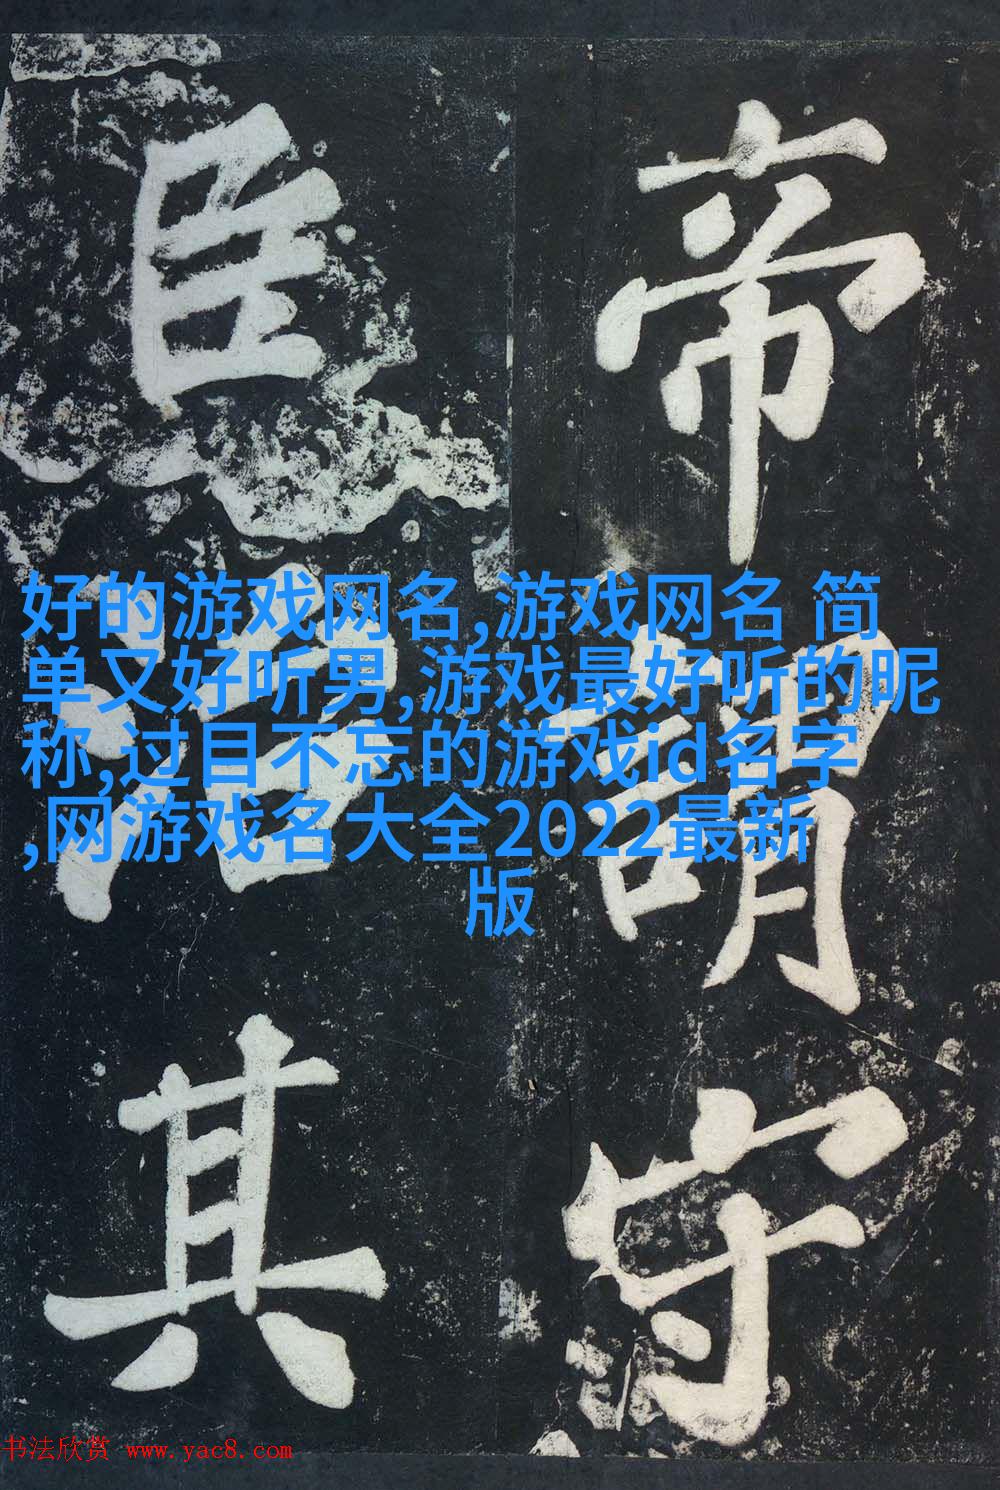 帝謂守
臣治其
好的游戏网名,游戏网名 简
单又好听男,游戏最好听的昵
称,过目不忘的游戏id名字
,网游戏名大全2022最新
版
书法欣赏 www.yac8.com